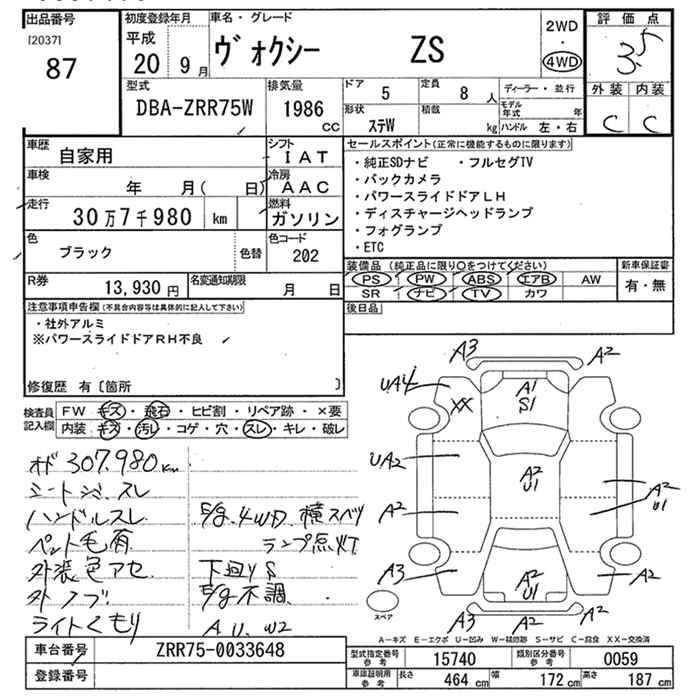 出品番号
[2037]
87
初度登録年月
平成
20 9月
車名・グレード
ヴォクシー ZS
2WD
・
4WD
評価点
3.5
外装 内装
C C
型式
DBA-ZRR75W
排気量
1986
CC
ドア 5
定員 8 人
形状 ステW
積載 kg
ディーラー・並行
モデル年式 年
ハンドル 左・右
車歴 自家用
シフト IAT
車検 年 月( 日)
冷房 AAC
走行 30万7千980 km
燃料 ガソリン
色 ブラック 色替
色コード 202
R券 13,930円
名変通知期限 月 日
セールスポイント(正常に機能するものに限ります)
・純正SDナビ ・フルセグTV
・バックカメラ
・パワースライドドアLH
・ディスチャージヘッドランプ
・フォグランプ
・ETC
装備品(純正品に限り○をつけてください) 新車保証書
PS PW ABS エアB AW 有・無
SR ナビ TV カワ
後日品
注意事項申告欄(不具合内容等は具体的に記入して下さい)
・社外アルミ
※パワースライドドアRH不良
修復歴 有〔箇所 〕
検査員記入欄
FW キズ・飛石・ヒビ割・リペア跡・×要
内装 キズ・汚レ・コゲ・穴・スレ・キレ・破レ
オド 307,980km
シートシミ・スレ
ハンドルスレ
ペット毛有
外装色アセ
ライトくもり
E/g.4WD.横スベリ
ランプ点灯
下回りS
E/g不調.
A U. W2
A3 A2
UA4 A1
XX S1
UA2 A2
U1
A2 A2
U1
A3 A2
U1 A2
A3 A2
スペア
A－キズ E－エクボ U－凹み W－補修跡 S－サビ C－腐食 XX－交換済
車台番号 ZRR75-0033648
登録番号
型式指定番号 参考 15740
類別区分番号 参考 0059
車庫証明用 参考
長さ 464 cm
幅 172 cm
高さ 187 cm